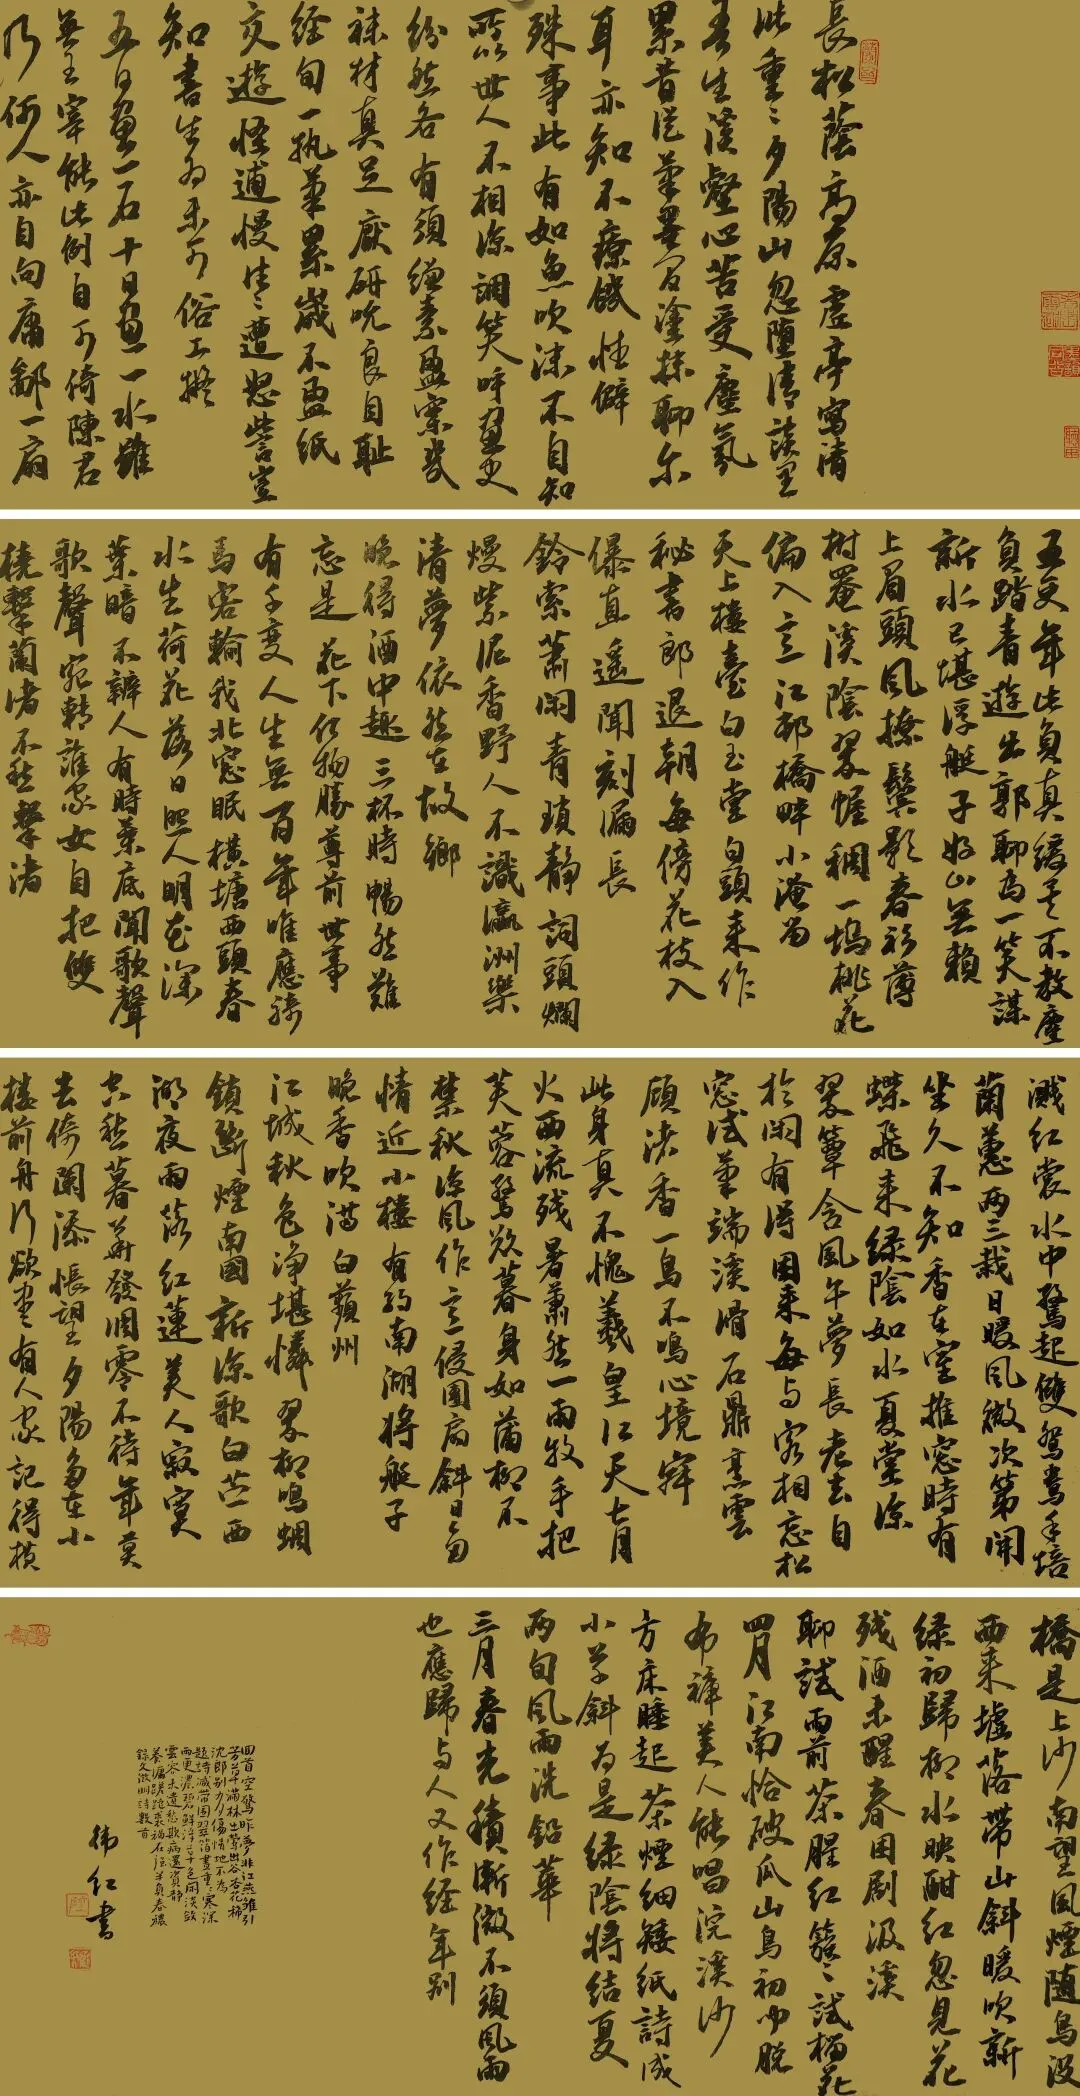 長松蔭高原虛亭寫清
此重〻夕陽山忽墮清談里
吾生溪壑心苦受塵氛
累昔從筆墨間塗抹聊爾
耳亦知不療饑性僻
殊事此有如魚吹沫不自知
所以世人不相諒調笑呼畫史
紛然各有須縑素盈案几
袜材真足厭研吮良自恥
經旬一執筆累歲不盈紙
交遊怪逋慢往〻遭怒訾豈
知書生為未可俗工擬
五日畫一石十日畫一水雖
無王宰能此例自可倚陳君
乃何人亦自向庸鄙一扇
五更年此負真緩是不教塵
負踏青遊出郭聊為一笑謀
新水已堪浮艇子好山無賴
上眉頭風撩鬢影春衫薄
樹罨溪陰翠幄稠一塢桃花
偏入意江邨橋畔小淹留
天上樓臺白玉堂白頭來作
秘書郎退朝每傍花枝入
儤直遥聞刻漏長
鈴索蕭閑青瑣靜詞頭爛
熳紫泥香野人不識瀛洲樂
清夢依然在故鄉
晚得酒中趣三杯時暢然難
忘是花下何物勝尊前世事
有千變人生無百年唯應騎
馬客輸我北窗眠橫塘西頭春
水生荷花落日照人明花深
葉暗不辨人有時葉底聞歌聲
歌聲宛轉誰家女自把雙
橈擊蘭渚不愁擊渚
濺紅裳水中驚起雙鴛鴦手培
蘭蕙兩三栽日暖風微次第開
坐久不知香在室推窗時有
蝶飛來綠陰如水夏堂涼
翠簟含風午夢長老去自
於閑有得困來每與客相忘松
窗試筆端溪滑石鼎烹雲
顧渚香一鳥不鳴心境寂
此身真不愧羲皇江天七月
火西流殘暑蕭然一雨收手把
芙蓉驚歲暮身如蒲柳不
禁秋涼風作意侵團扇斜日多
情近小樓有約南湖將艇子
晚香吹滿白蘋州
江城秋色淨堪憐翠柳鳴蜩
鎖斷煙南國新涼歌白苧西
湖夜雨落紅蓮美人寂寞
空愁暮華髮凋零不待年莫
去倚闌添悵望夕陽多在小
樓前舟行欲盡有人家記得橫
橋是上沙南望風煙隨鳥沒
西來墟落帶山斜暖吹新
綠初歸柳水映酣紅忽見花
殘酒未醒春困劇汲溪
聊試雨前茶腥紅簇〻試榴花
四月江南恰破瓜山鳥初鳴脫
布褲美人能唱浣溪沙
方床睡起茶煙細矮紙詩成
小草斜為是綠陰將結夏
兩旬風雨洗鉛華
三月春光積漸微不須風雨
也應歸與人又作經年別
回首空驚昨夢非江燕雛引
芳草滿林出鶯出谷花
沈郎別
題詩減帶圍翠箔重〻寒深
雨更濃
雲容未遣愁欺病還資靜
養
錄文徵明詩數首
偉紅書